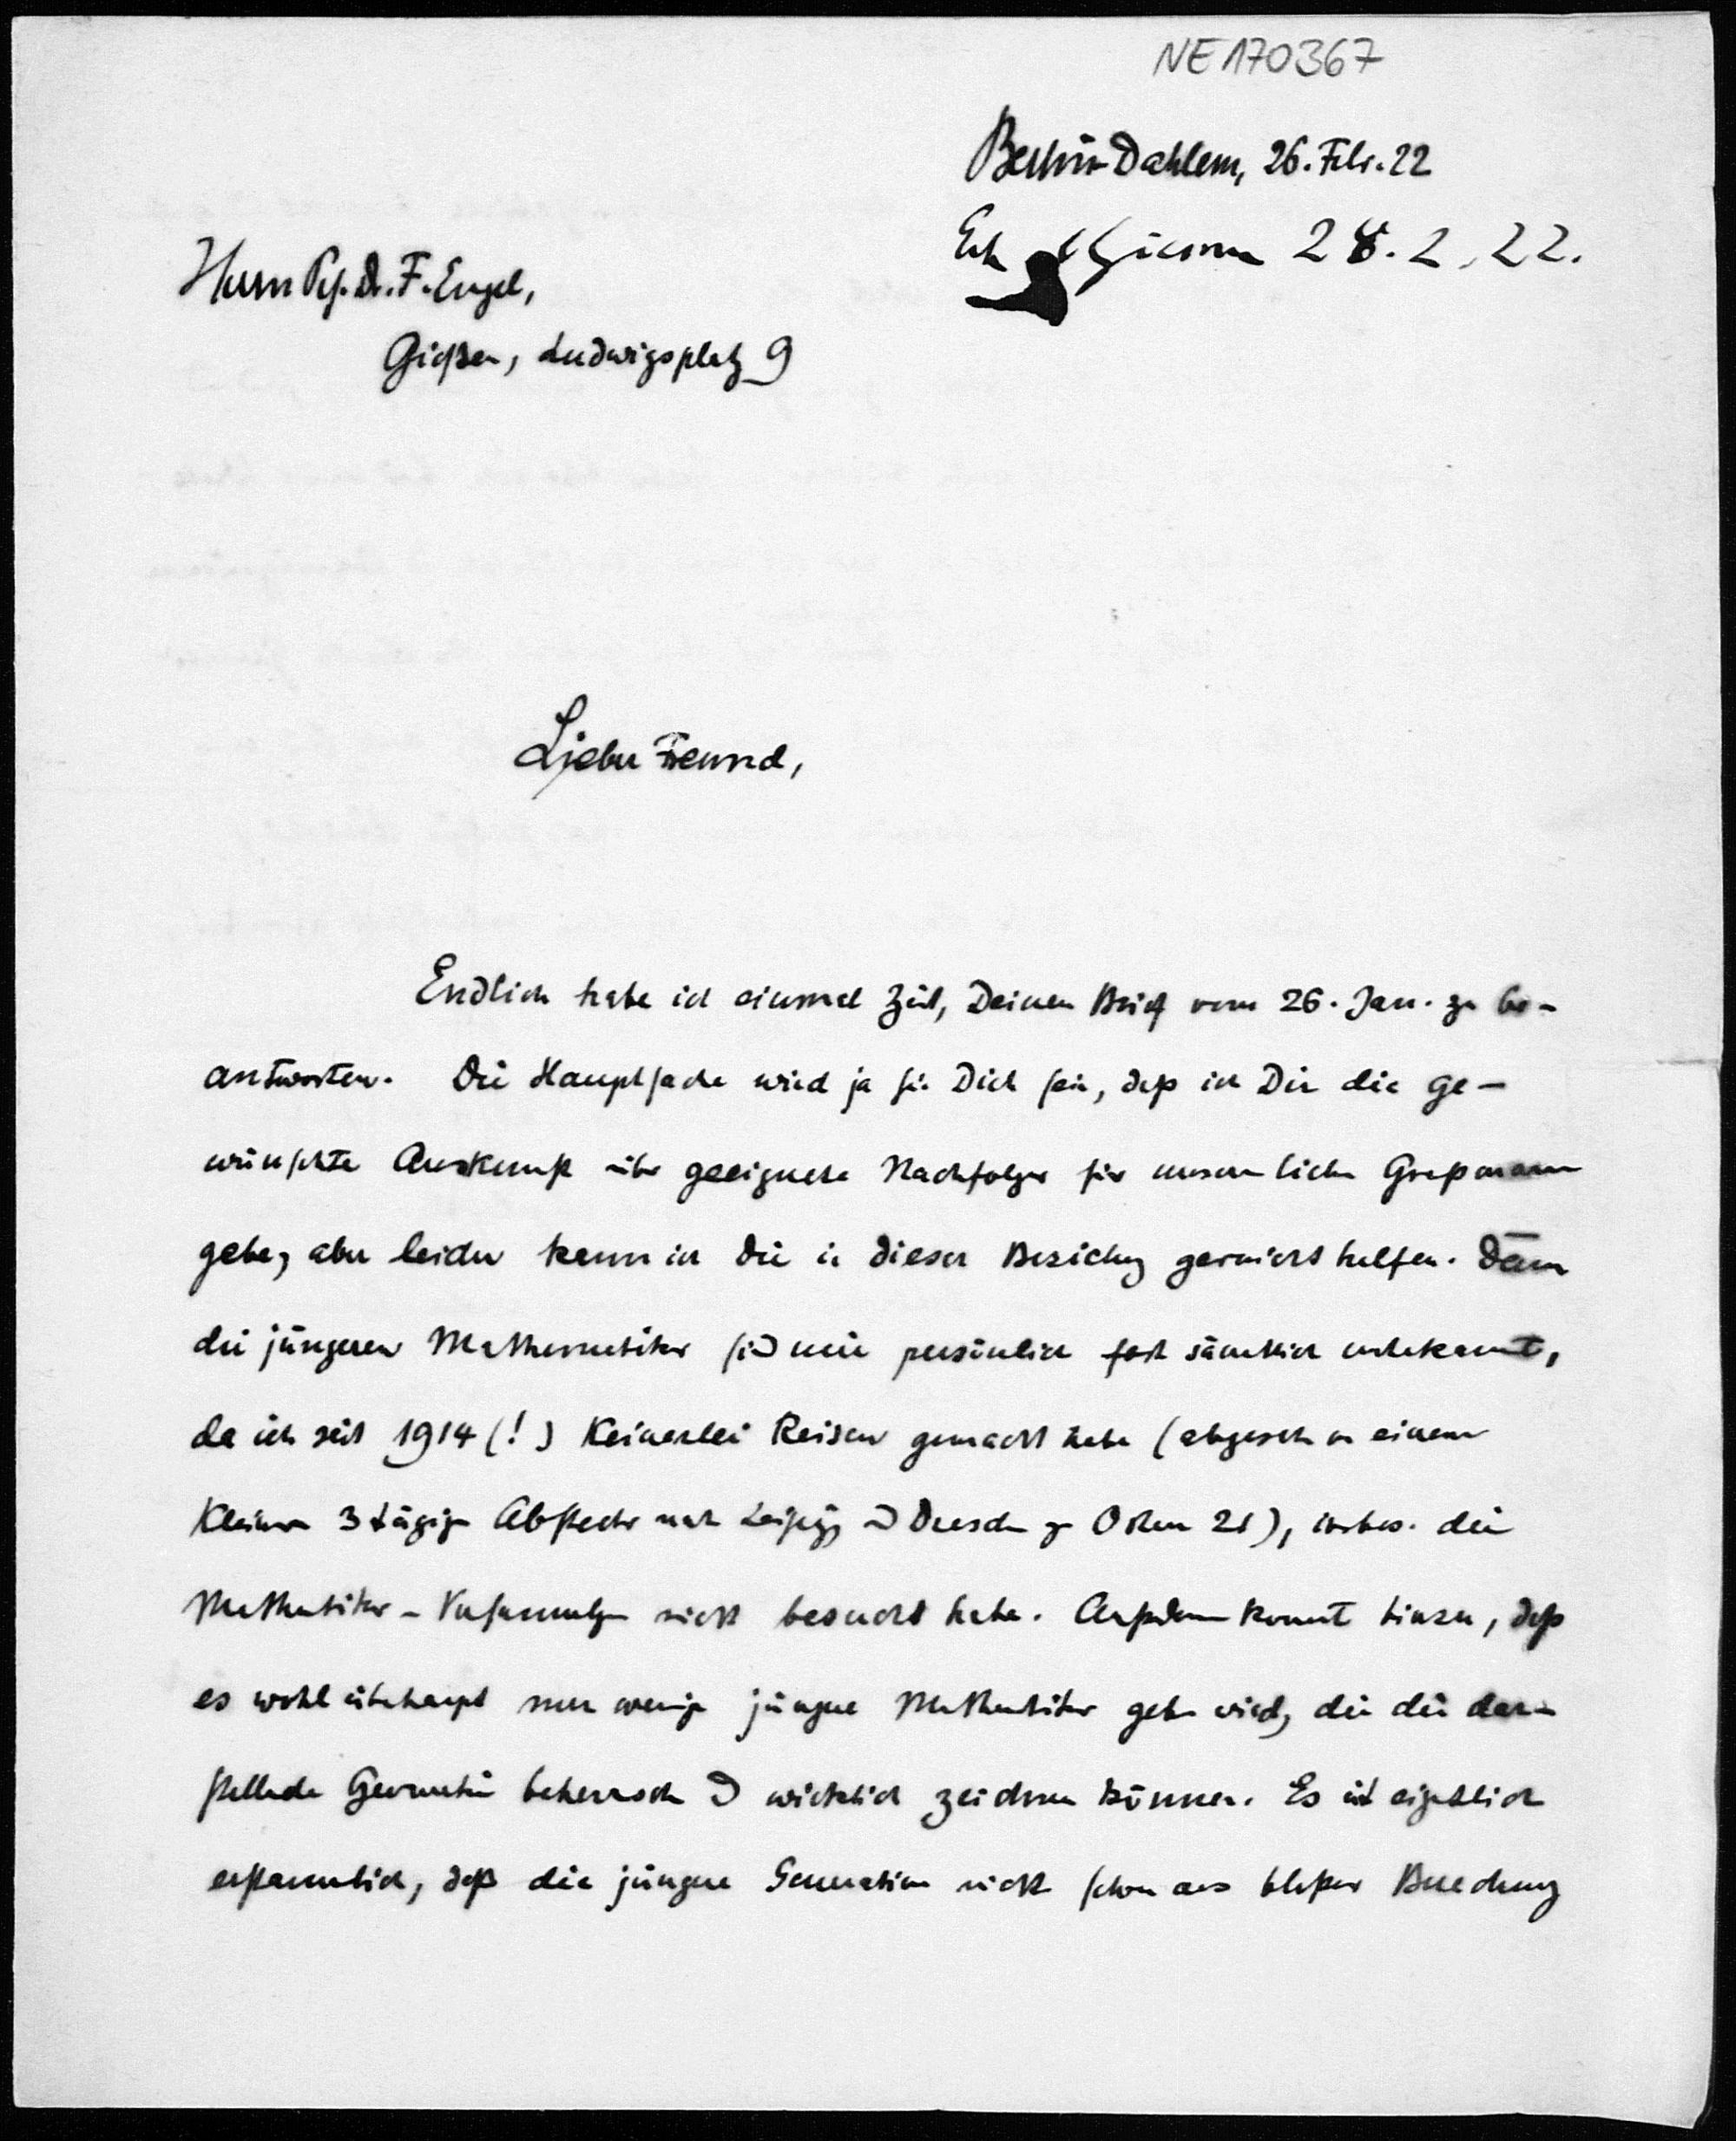 NE170367
Berlin-Dahlem, 26. Febr. 22
Erh. Giessen 28.2.22.
Herrn Prof. Dr. F. Engel,
Gießen, Ludwigsplatz 9
Lieber Freund,
Endlich habe ich einmal Zeit, Deinen Brief vom 26. Jan. zu be-
antworten. Die Hauptsache wird ja für Dich sein, daß ich Dir die ge-
wünschte Auskunft über geeignete Nachfolger für unseren lieben Graßmann
gebe, aber leider kann ich Dir in dieser Beziehung garnicht helfen. Denn
die jüngeren Mathematiker sind mir persönlich fast sämtlich unbekannt,
da ich seit 1914 (!) keinerlei Reisen gemacht habe (abgesehen von einem
kleinen 3tägigen Abstecher nach Leipzig und Dresden zu Ostern 21), insbes. die
Mathematiker-Versammlungen nicht besucht habe. Außerdem kommt hinzu, daß
es wohl überhaupt nur wenige jüngere Mathematiker geben wird, die die dar-
stellende Geometrie beherrschen und wirklich zeichnen können. Es ist eigentlich
erstaunlich, daß die jüngere Generation nicht schon aus bloßer Berechnung